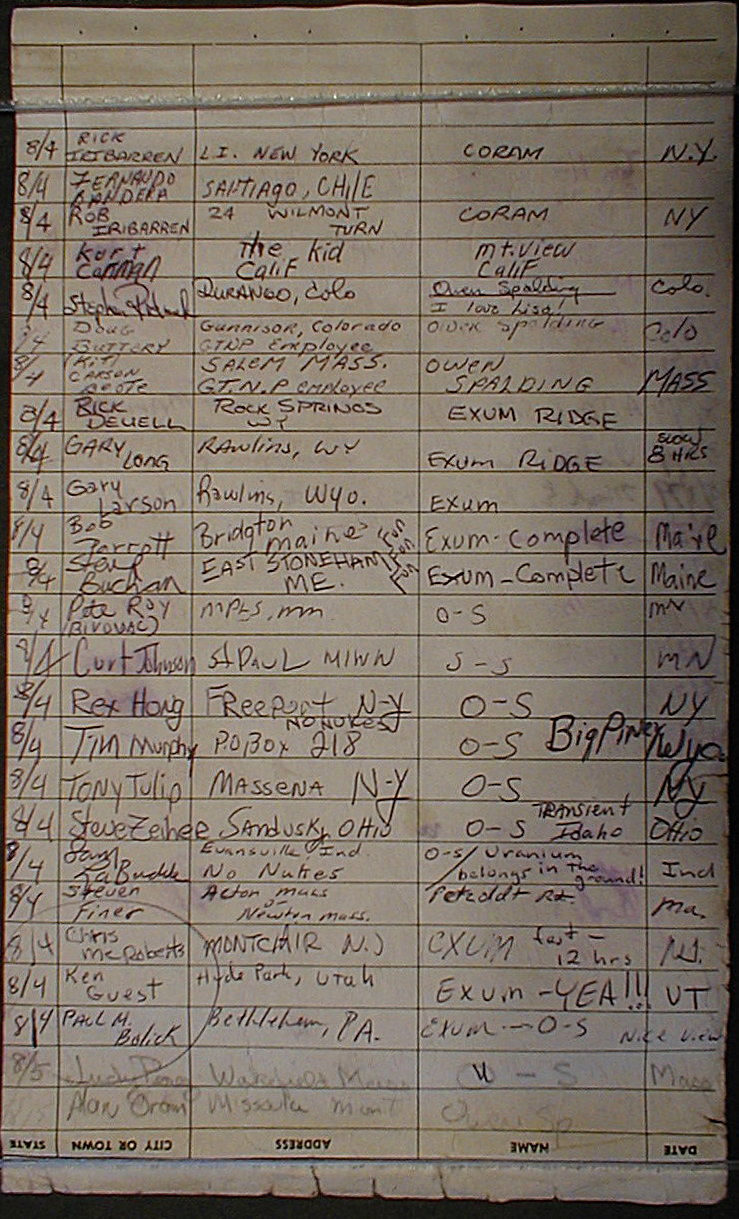 8/4 RICK IRIBARREN L.I. NEW YORK CORAM N.Y.
8/4 FERNANDO BANDERA SANTIAGO, CHILE
8/4 ROB IRIBARREN 24 WILMONT TURN CORAM NY
8/4 Kurt Carman The kid Calif mt. view Calif
8/4 Stephen DURANGO, Colo Owen Spalding I love Lisa! Colo.
8/4 DOUG BUTTERY Gunnison, Colorado GTNP Employee Owen Spalding Colo
8/4 (KIT) CARSON SALEM MASS. GT.N.P employee OWEN SPALDING MASS
8/4 RICK DEUELL ROCK SPRINGS WY EXUM RIDGE
8/4 GARY LONG RAWlins, WY EXUM RIDGE SLOW 8 HRS
8/4 Gary Larson Rawlins, Wyo. Exum
8/4 Bob Parrott Bridgton maine Fun Fun Fun Exum-Complete Maine
8/4 Steve Buchan EAST STONEHAM ME. Exum-Complete Maine
8/4 Pete Roy (BIVOUAC) MPLS, mn O-S mN
8/4 Curt Johnson St PAUL MINN S-S mN
8/4 Rex Hong FReeport N-y O-S NY
8/4 Tim Murphy P.O.Box 218 NO NUKES O-S Big Piney Wyo
8/4 TONY Tulip MASSENA N-y O-S Ny
8/4 Steve Zeiher SANDUSKY, OHIO O-S TRANSIENT Idaho OHIO
8/4 LaBudde Evansville, Ind. No Nukes O-S/ Uranium belongs in the ground! Ind
8/4 Steven Finer Acton mass or Newton mass. Petzoldt Rd. ma.
8/4 Chris McRoberts MONTCLAIR N.J EXUM fast - 12 hrs N.J.
8/4 Ken Guest Hyde Park, Utah Exum - YEA!!! UT
8/4 PAUL M. Bolick Bethlehem, PA. Exum - O-S Nice view
8/5 Judy Wakefield Mass O - S Mass
Alan Missoula Mont Owen Sp
STATE CITY OR TOWN ADDRESS NAME DATE